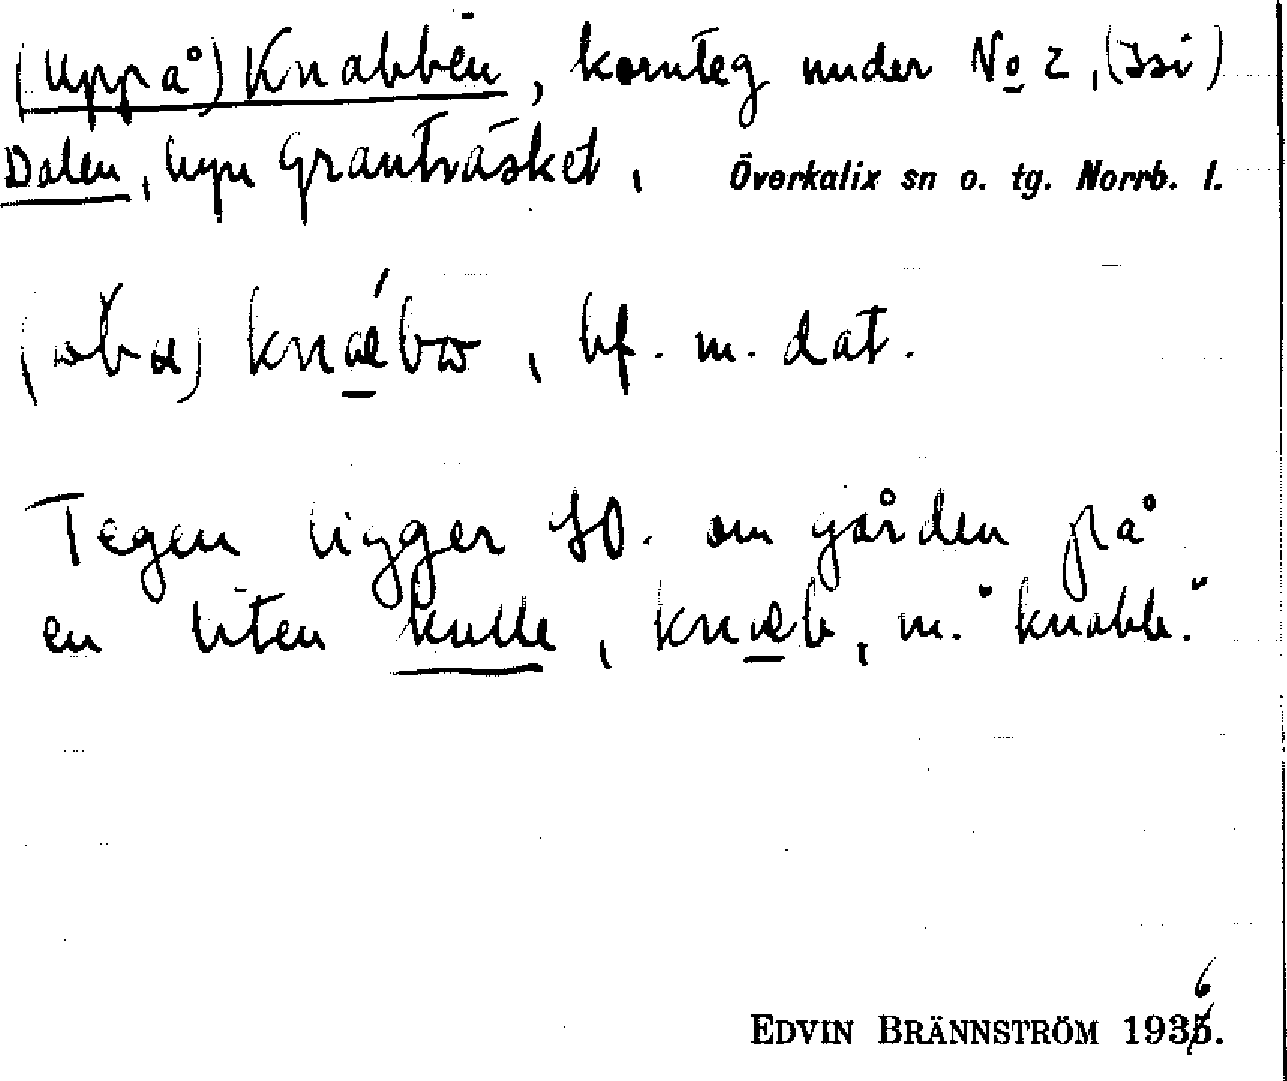 (Uppå) Knabben, kornteg under No 2, (Isi)
Dalen, byn Granträsket, Överkalix sn o. tg. Norrb. l.
bf. m. dat.
Tegen ligger SO. om gården på
en liten kulle, knæb, m. "knabb."
6
EDVIN BRÄNNSTRÖM 1935.